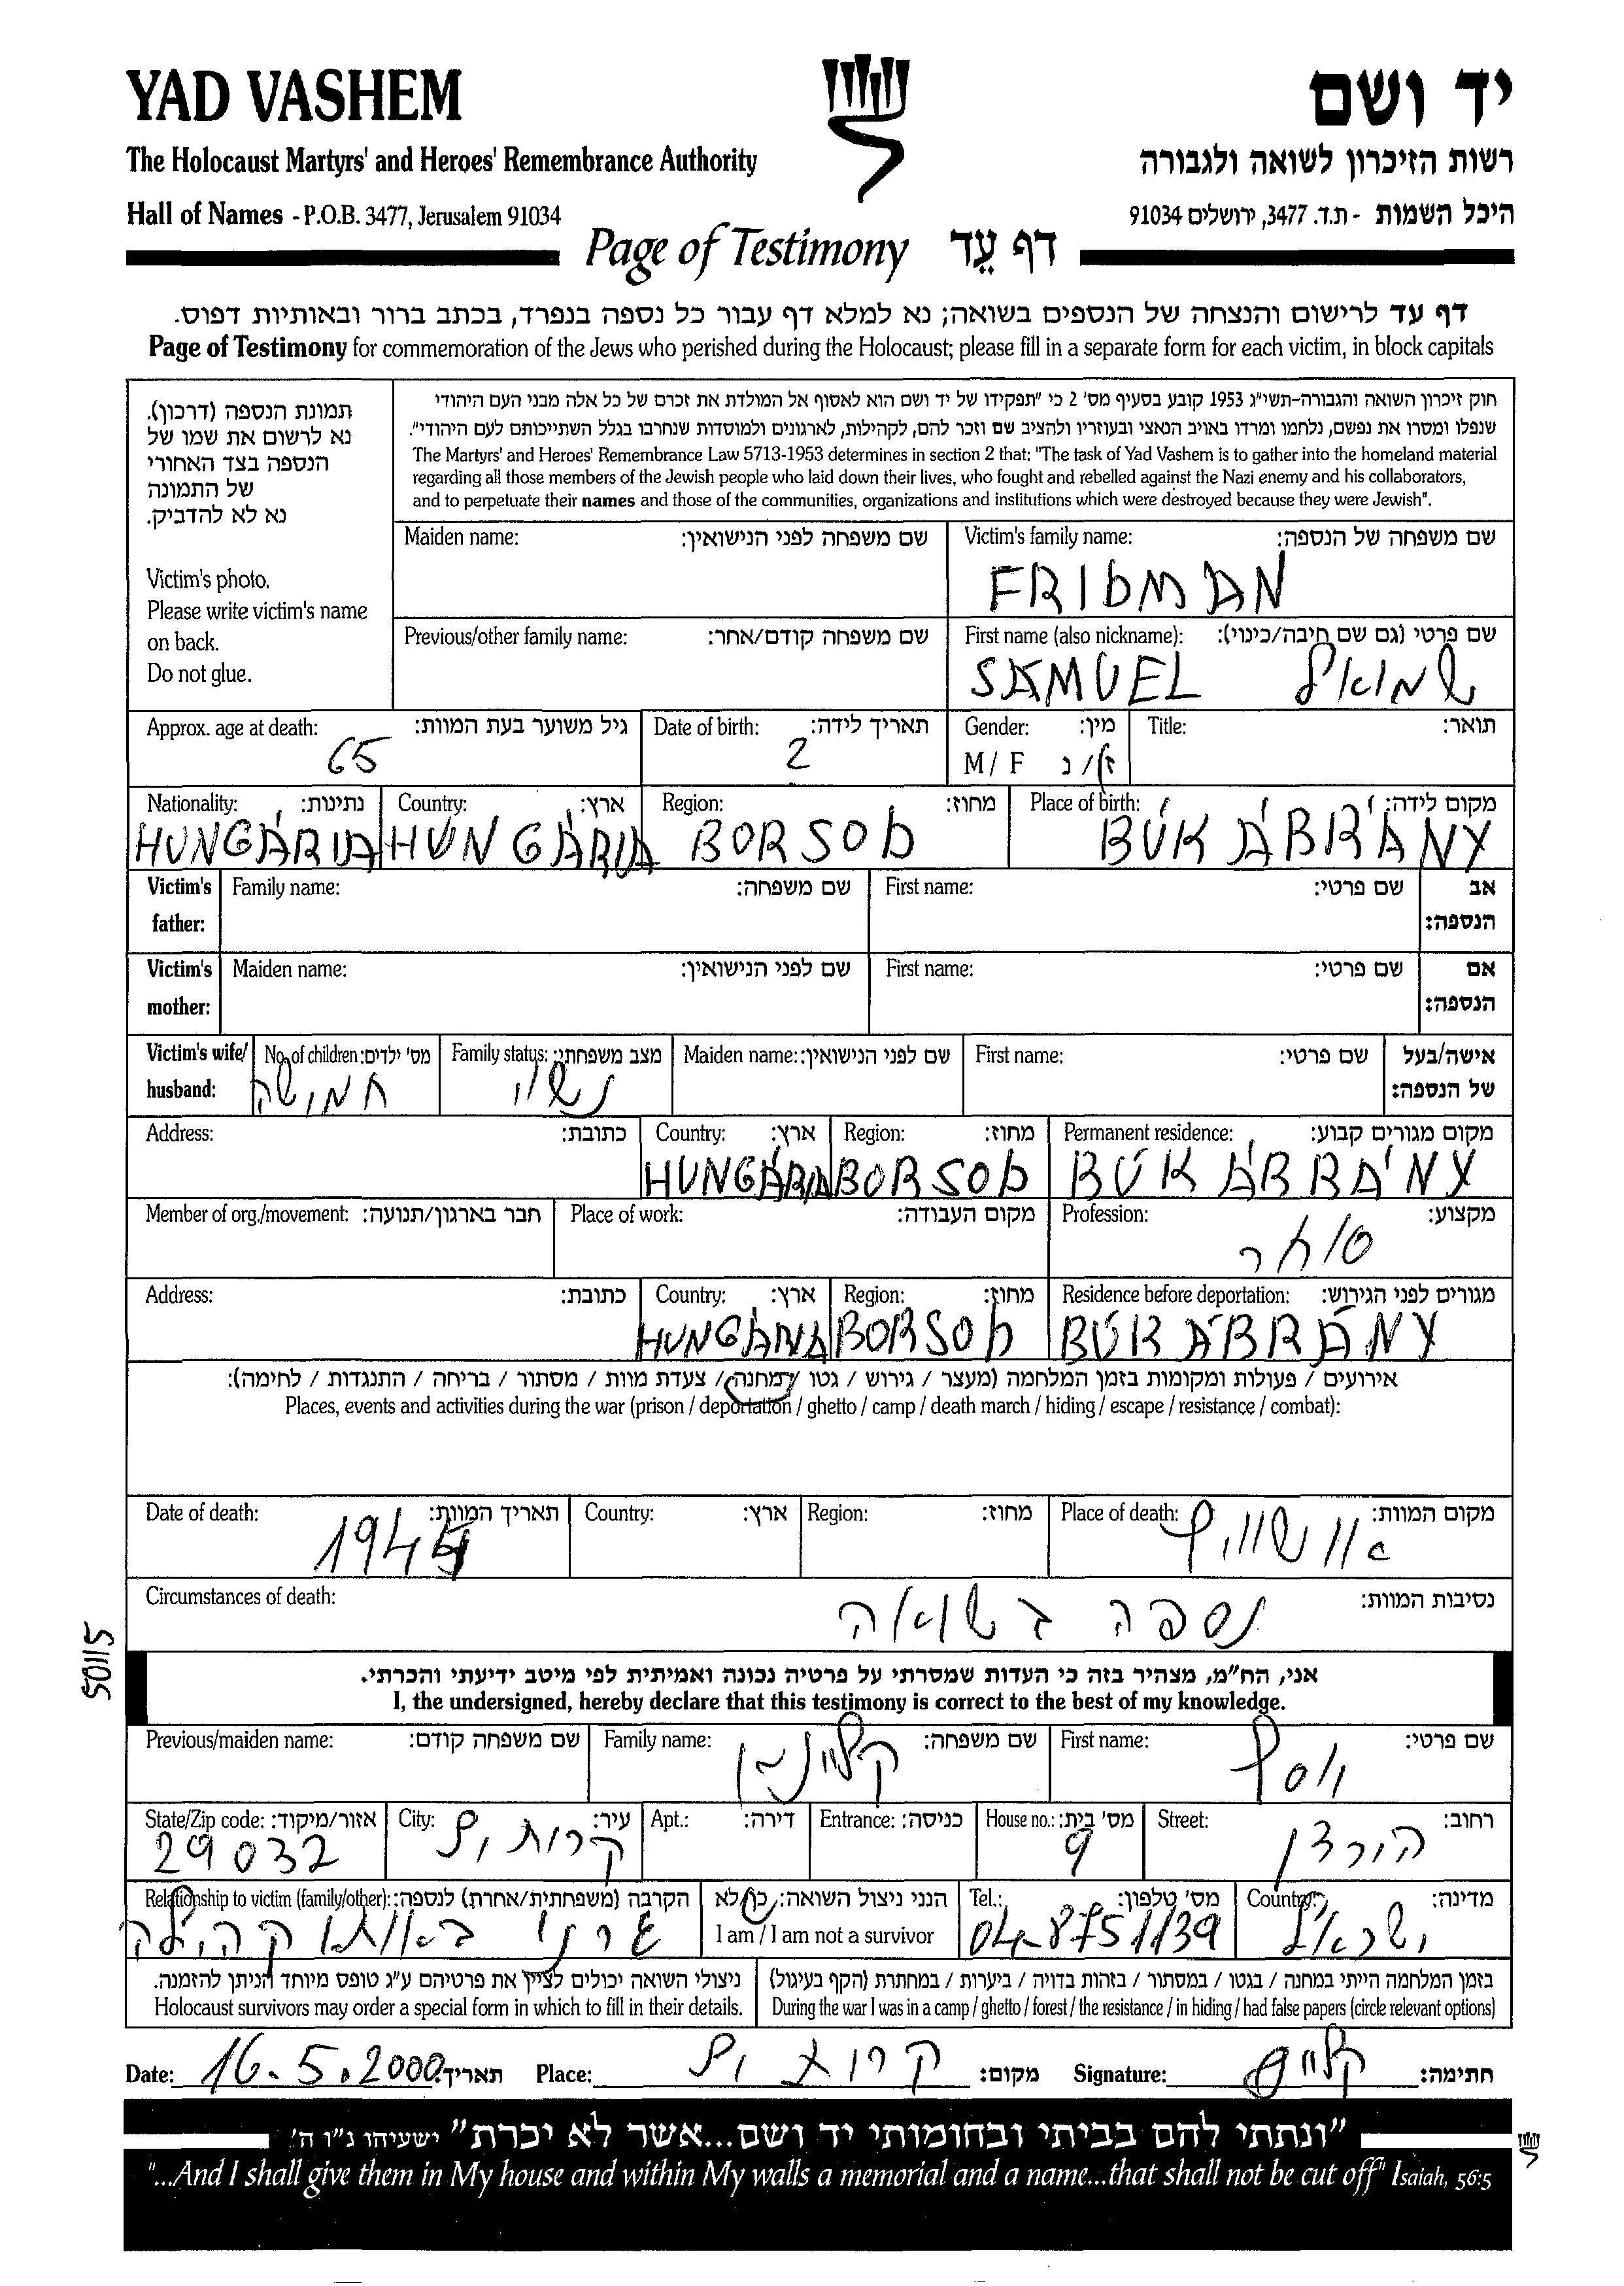 YAD VASHEM
יד ושם
The Holocaust Martyrs' and Heroes' Remembrance Authority
רשות הזיכרון לשואה ולגבורה
Hall of Names - P.O.B. 3477, Jerusalem 91034
היכל השמות - ת.ד. 3477, ירושלים 91034
Page of Testimony דף עֵד
דף עד לרישום והנצחה של הנספים בשואה; נא למלא דף עבור כל נספה בנפרד, בכתב ברור ובאותיות דפוס.
Page of Testimony for commemoration of the Jews who perished during the Holocaust; please fill in a separate form for each victim, in block capitals
תמונת הנספה (דרכון).
נא לרשום את שמו של
הנספה בצד האחורי
של התמונה
נא לא להדביק.
Victim's photo.
Please write victim's name
on back.
Do not glue.
חוק זיכרון השואה והגבורה-תשי"ג 1953 קובע בסעיף מס' 2 כי "תפקידו של יד ושם הוא לאסוף אל המולדת את זכרם של כל אלה מבני העם היהודי
שנפלו ומסרו את נפשם, נלחמו ומרדו באויב הנאצי ובעוזריו ולהציב שם וזכר להם, לקהילות, לארגונים ולמוסדות שנחרבו בגלל השתייכותם לעם היהודי".
The Martyrs' and Heroes' Remembrance Law 5713-1953 determines in section 2 that: "The task of Yad Vashem is to gather into the homeland material
regarding all those members of the Jewish people who laid down their lives, who fought and rebelled against the Nazi enemy and his collaborators,
and to perpetuate their names and those of the communities, organizations and institutions which were destroyed because they were Jewish".
Maiden name: שם משפחה לפני הנישואין:
Victim's family name: שם משפחה של הנספה:
FRIDMAN
Previous/other family name: שם משפחה קודם/אחר:
First name (also nickname): שם פרטי (גם שם חיבה/כינוי):
SAMUEL שמואל
Approx. age at death: גיל משוער בעת המוות:
65
Date of birth: תאריך לידה:
2
Gender: מין:
M / F ז/נ
Title: תואר:
Nationality: נתינות:
HUNGÁRIA
Country: ארץ:
HUNGÁRIA
Region: מחוז:
BORSOD
Place of birth: מקום לידה:
BÜKÁBRÁNY
Victim's father: Family name: שם משפחה: First name: שם פרטי: אב הנספה:
Victim's mother: Maiden name: שם לפני הנישואין: First name: שם פרטי: אם הנספה:
Victim's wife/ husband: No. of children: מס' ילדים: Family status: מצב משפחתי: Maiden name: שם לפני הנישואין: First name: שם פרטי: אישה/בעל של הנספה:
חמישה נשוי
Address: כתובת: Country: ארץ: Region: מחוז: Permanent residence: מקום מגורים קבוע:
HUNGÁRIA BORSOD BÜKÁBRÁNY
Member of org./movement: חבר בארגון/תנועה: Place of work: מקום העבודה: Profession: מקצוע:
סוחר
Address: כתובת: Country: ארץ: Region: מחוז: Residence before deportation: מגורים לפני הגירוש:
HUNGÁRIA BORSOD BÜKÁBRÁNY
אירועים / פעולות ומקומות בזמן המלחמה (מעצר / גירוש / גטו / מחנה / צעדת מוות / מסתור / בריחה / התנגדות / לחימה):
Places, events and activities during the war (prison / deportation / ghetto / camp / death march / hiding / escape / resistance / combat):
Date of death: תאריך המוות: Country: ארץ: Region: מחוז: Place of death: מקום המוות:
1944 אושוויץ
Circumstances of death: נסיבות המוות:
נספה בשואה
50115
אני, הח"מ, מצהיר בזה כי העדות שמסרתי על פרטיה נכונה ואמיתית לפי מיטב ידיעתי והכרתי.
I, the undersigned, hereby declare that this testimony is correct to the best of my knowledge.
Previous/maiden name: שם משפחה קודם: Family name: שם משפחה: First name: שם פרטי:
קליינמן יוסף
State/Zip code: אזור/מיקוד: City: עיר: Apt.: דירה: Entrance: כניסה: House no.: מס' בית: Street: רחוב:
29032 קרית ים 9 הירדן
Relationship to victim (family/other): הקרבה (משפחתית/אחרת) לנספה: הנני ניצול השואה: כן/לא
I am / I am not a survivor
Tel.: מס' טלפון: Country: מדינה:
גרנו באותו קהילה 04-8751139 ישראל
ניצולי השואה יכולים לציין את פרטיהם ע"ג טופס מיוחד הניתן להזמנה.
Holocaust survivors may order a special form in which to fill in their details.
בזמן המלחמה הייתי במחנה / בגטו / במסתור / בזהות בדויה / ביערות / במחתרת (הקף בעיגול)
During the war I was in a camp / ghetto / forest / the resistance / in hiding / had false papers (circle relevant options)
Date: 16.5.2000 תאריך: Place: קרית ים מקום: Signature: חתימה:
"ונתתי להם בביתי ובחומותי יד ושם...אשר לא יכרת" ישעיהו נ"ו ה'
"...And I shall give them in My house and within My walls a memorial and a name...that shall not be cut off" Isaiah, 56:5